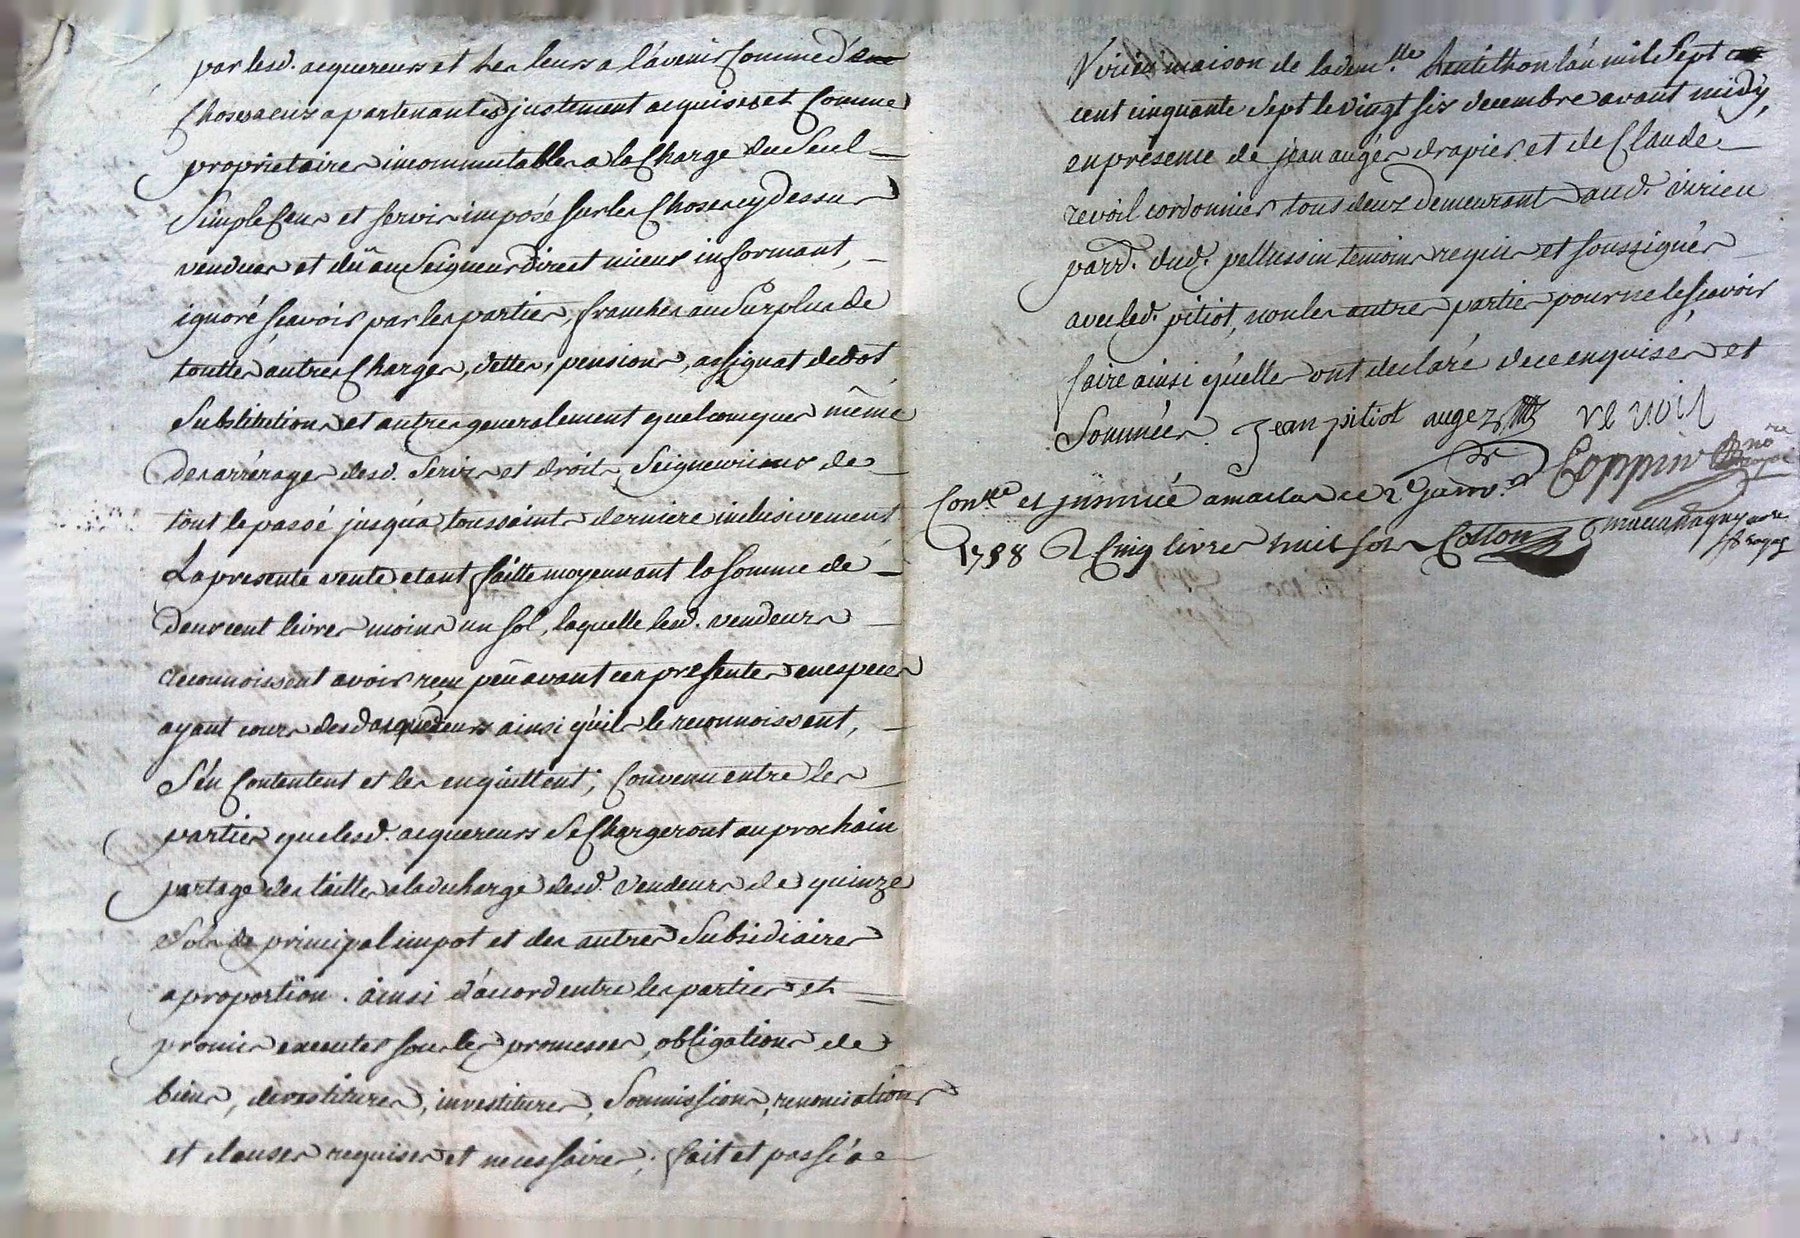 par lesd. acquereurs et les leurs a l'avenir Comme d'une
Choses a eux apartenantes justement acquises et Comme
proprietaires incommutables a la Charge du Seul
Simple Cens et servis imposé sur les Choses cy dessus
vendues et dû au Seigneur direct mieux informant,
ignoré scavoir par les parties, franches au Surplus de
toutte autres Charges, dettes, pensions, assignat de dot
Substitutions et autres generalement quelconques même
des arrérages desd. Servis et droits Seigneuriaux de
tout le passé jusqu'a toussaints derniere inclusivement
La presente vente etant faitte moyennant la Somme de
deux cent livres moins un sol, laquelle lesd. vendeurs
reconnoissent avoir reçu peu avant ces presentes en especes
ayant cours desd acquereurs ainsi qu'ils le reconnoissent,
S'en Contentent et les en quittent; Convenu entre les
parties que lesd. acquereurs se Chargeront au prochain
partage des tailles a la decharge desd. vendeurs de quinze
Sols de principal impot et des autres Subsidiaires
a proportion. ainsi d'accord entre les parties et
promis executer sous les promesses, obligations de
biens, devestitures, investitures, Soumissions, renonciations
et clauses requises et necessaires; fait et passé a
Virieu maison de lad dem.lle l'an mil Sept
cent cinquante Sept le vingt six decembre avant midy,
en presence de jean augér drapier et de Claude
revoil cordonnier tous deux demeurant aud. virieu
parr. dud. pellussin temoins requis et soussignés
avec led. pitiot, non les autres parties pour ne le scavoir
faire ainsi qu'elles ont declaré de ce enquises et
Sommées. Jean pitiot auger revoil
Coppin no.re
Con.lle et jnsinué a malus ce 2e janv.
1758 R Cinq livres huit sols Cotton